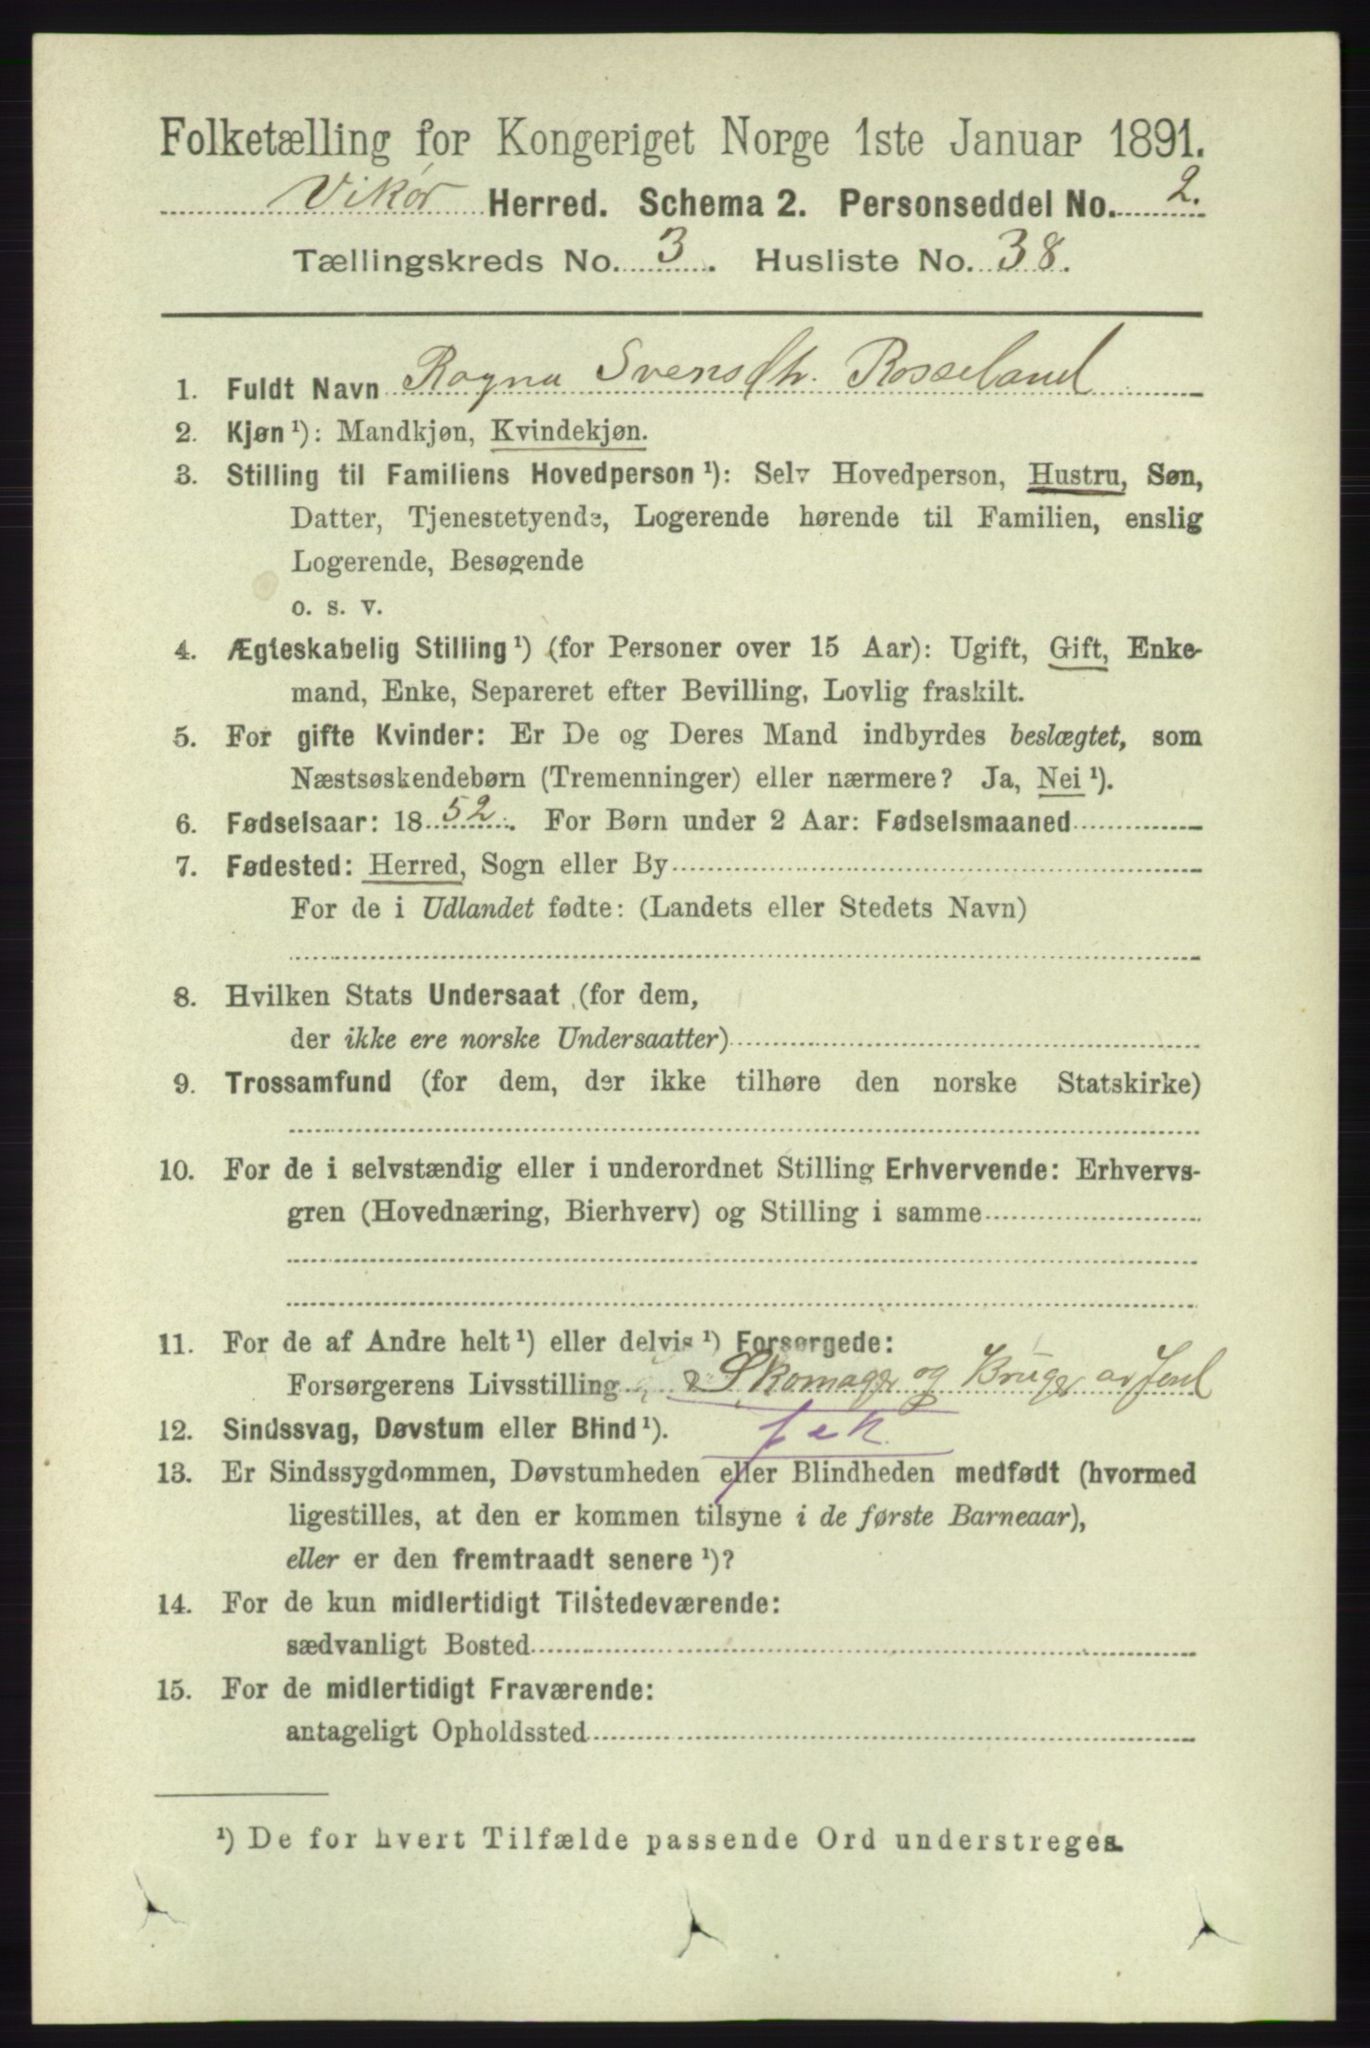 Folketælling for Kongeriget Norge 1ste Januar 1891.
Vikør Herred. Schema 2. Personseddel No. 2.
Tællingskreds No. 3. Husliste No. 38.
1. Fuldt Navn Ragna Svensdtr. Rosseland
2. Kjøn ¹): Mandkjøn, Kvindekjøn.
3. Stilling til Familiens Hovedperson ¹): Selv Hovedperson, Hustru, Søn,
Datter, Tjenestetyende, Logerende hørende til Familien, enslig
Logerende, Besøgende
o. s. v.
4. Ægteskabelig Stilling ¹) (for Personer over 15 Aar): Ugift, Gift, Enke-
mand, Enke, Separeret efter Bevilling, Lovlig fraskilt.
5. For gifte Kvinder: Er De og Deres Mand indbyrdes beslægtet, som
Næstsøskendebørn (Tremenninger) eller nærmere? Ja, Nei ¹).
6. Fødselsaar: 1852. For Børn under 2 Aar: Fødselsmaaned
7. Fødested: Herred, Sogn eller By
For de i Udlandet fødte: (Landets eller Stedets Navn)
8. Hvilken Stats Undersaat (for dem,
der ikke ere norske Undersaatter)
9. Trossamfund (for dem, der ikke tilhøre den norske Statskirke)
10. For de i selvstændig eller i underordnet Stilling Erhvervende: Erhvervs-
gren (Hovednæring, Bierhverv) og Stilling i samme
11. For de af Andre helt ¹) eller delvis ¹) Forsørgede:
Forsørgerens Livsstilling Skomager og Bruger av Jord
12. Sindssvag, Døvstum eller Blind ¹).
13. Er Sindssygdommen, Døvstumheden eller Blindheden medfødt (hvormed
ligestilles, at den er kommen tilsyne i de første Barneaar),
eller er den fremtraadt senere ¹)?
14. For de kun midlertidigt Tilstedeværende:
sædvanligt Bosted
15. For de midlertidigt Fraværende:
antageligt Opholdssted
¹) De for hvert Tilfælde passende Ord understreges.